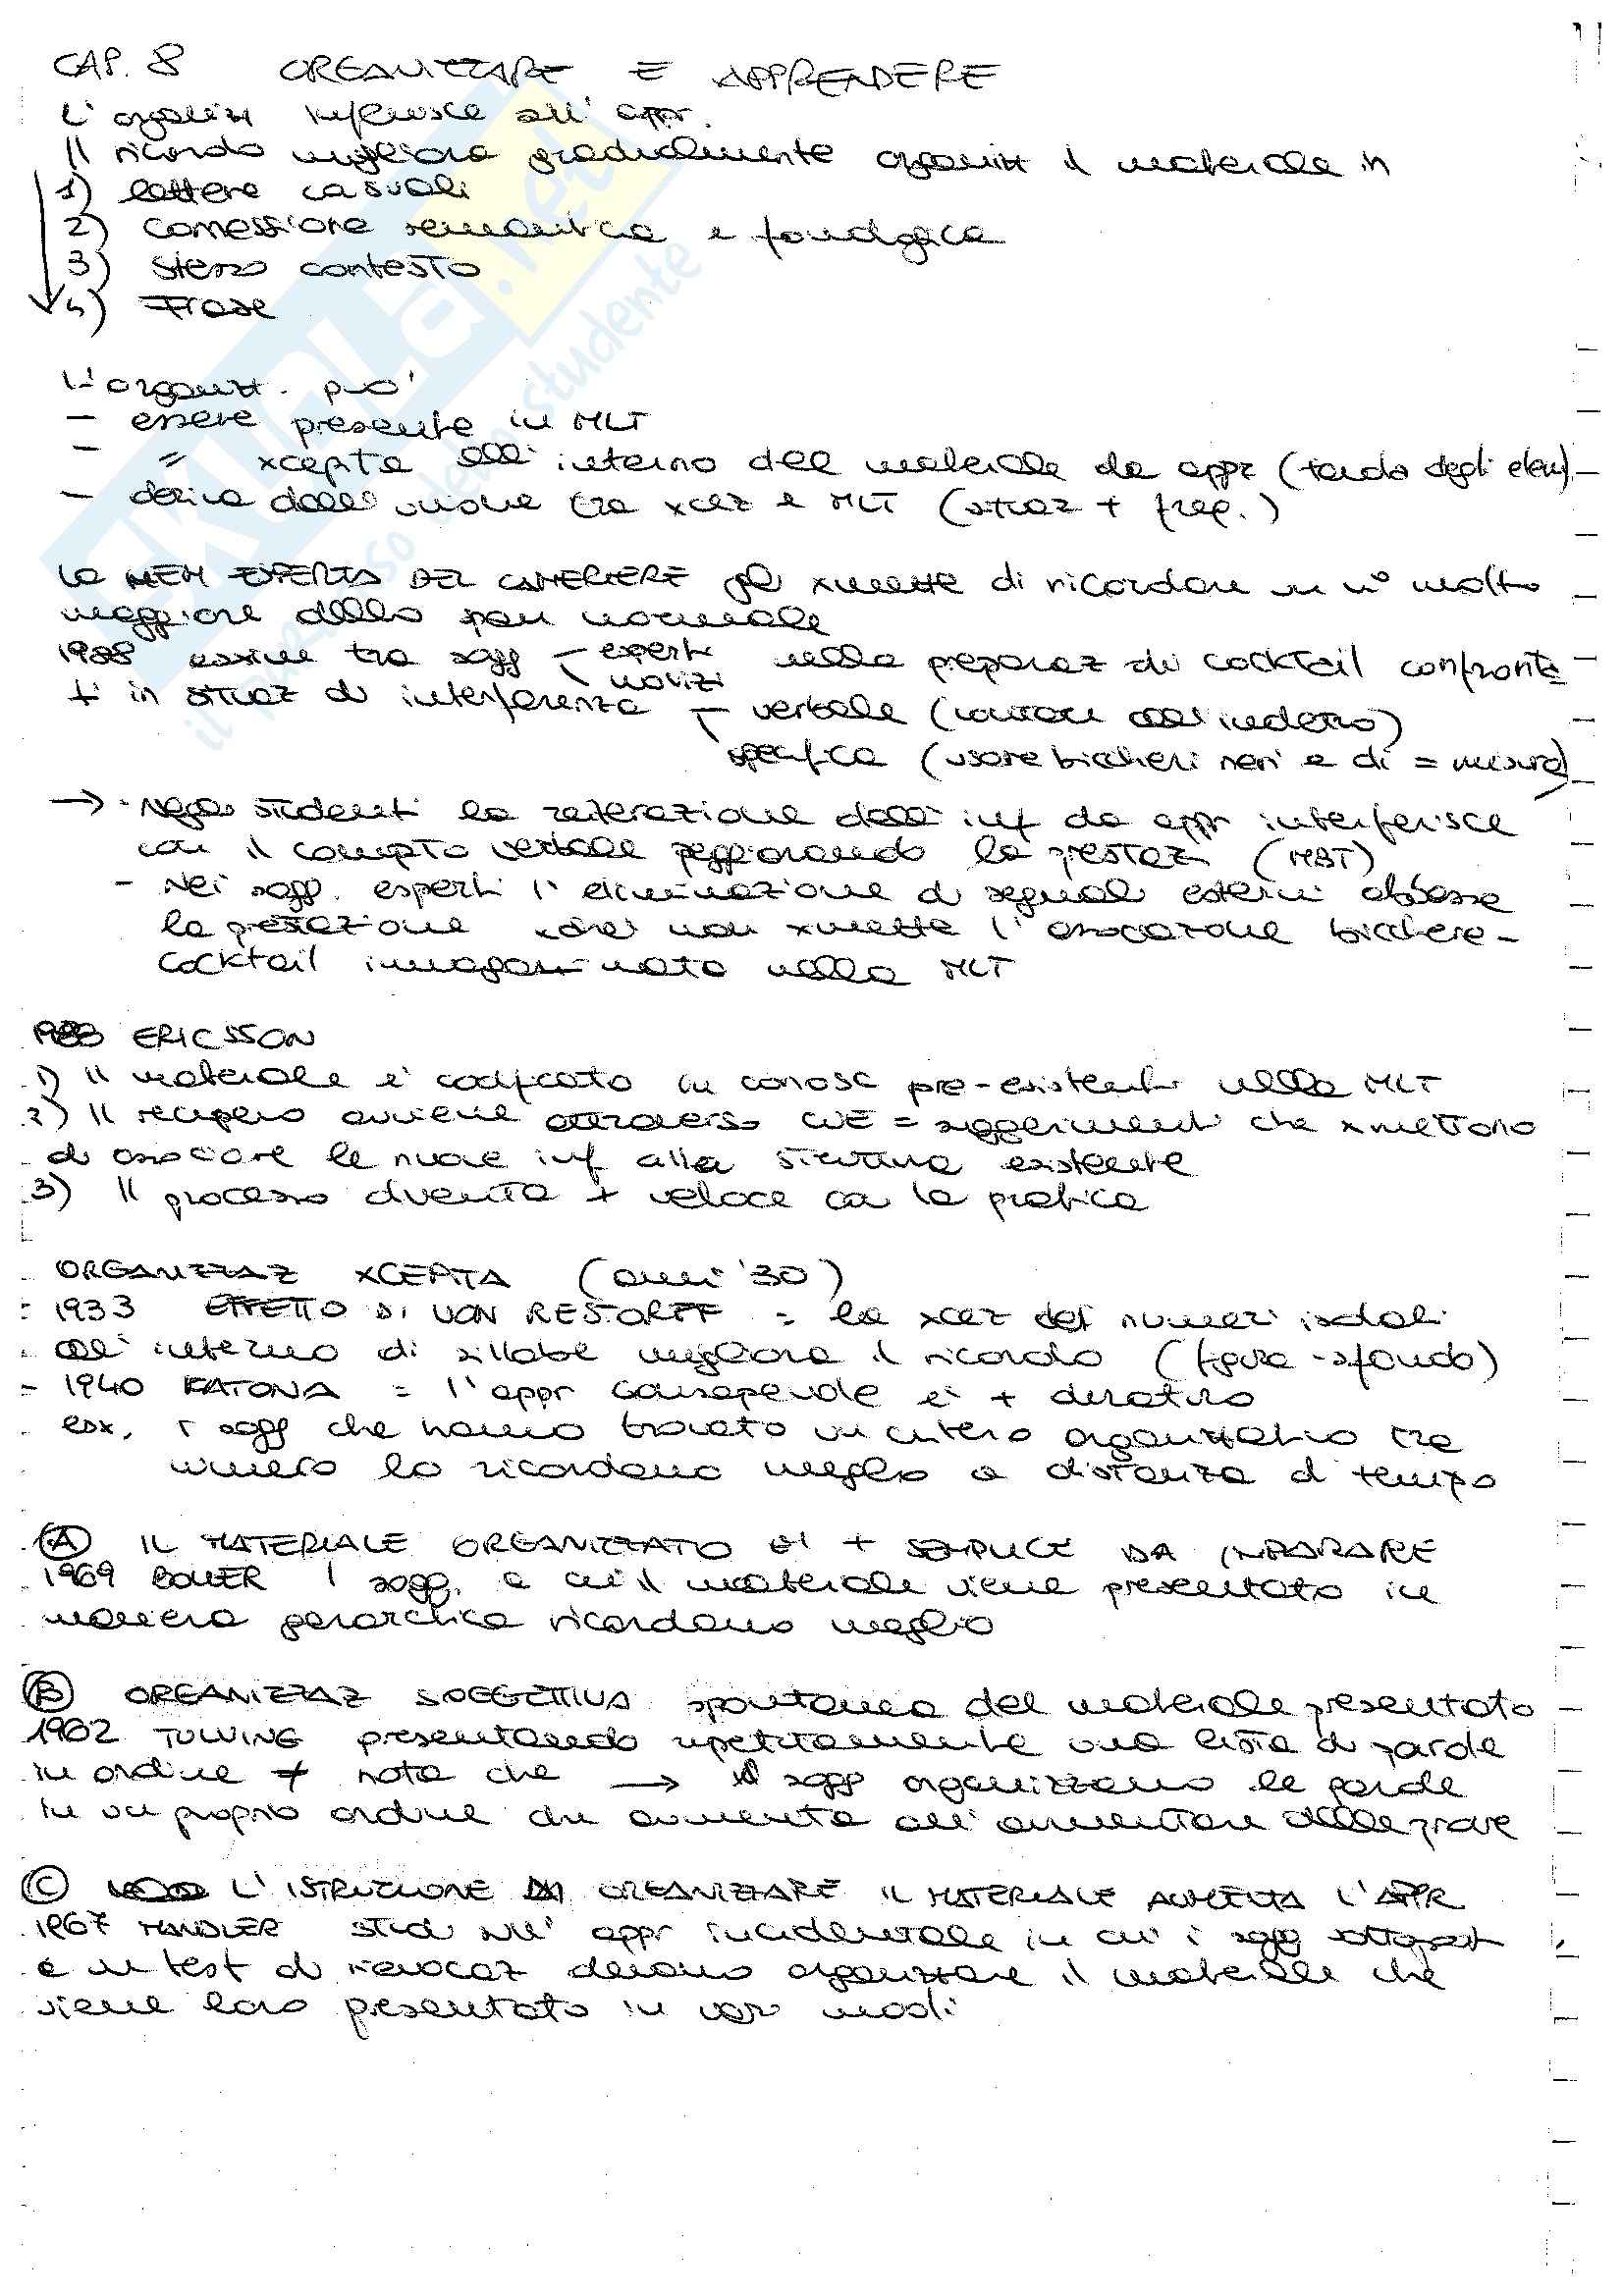 CAP. 8 ORGANIZZARE E APPRENDERE
L'organizz influisce sull'appr.
Il ricordo migliora gradualmente organizz il materiale in
1) lettere casuali
2) connessione semantica e fonologica
3) stesso contesto
4) Frase
L'organizz. può
- essere presente in MLT
- = xcepita all'interno del materiale da appr (tondo degli elem)
- deriva dall'unione tra xcez e MLT (straz + freq.)
La MEM ESPERTA DEL CAMERIERE gli xmette di ricordare un n° molto
maggiore dello span normale
1988 essine tra sogg - esperti nella preparaz di cocktail confronta
novizi
ti in situaz di interferenza - verbale (contare all'indietro)
specifica (usare bicchieri neri e di = misura)
→ - Negli studenti la reiterazione dell'inf da appr interferisce
con il compito verbale peggiorando la prestaz (MBT)
- Nei sogg. esperti l'eliminazione di segnali esterni abbassa
la prestazione xchè non xmette l'associazione bicchiere-
cocktail immagazzinata nella MLT
1988 ERICSSON
1) Il materiale è codificato in conosc pre-esistenti nella MLT
2) Il recupero avviene attraverso CUE = suggerimenti che xmettono
di associare le nuove inf alla struttura esistente
3) Il processo diventa + veloce con la pratica
ORGANIZZAZ XCEPITA (anni '30)
1933 EFFETTO DI VON RESTORFF = la xcez dei numeri isolati
all'interno di sillabe migliora il ricordo (figura-sfondo)
- 1940 KATONA = l'appr consapevole è + duraturo
esx. i sogg che hanno trovato un criterio organizzativo tra
numero lo ricordano meglio a distanza di tempo
(A) IL MATERIALE ORGANIZZATO è + SEMPLICE DA IMPARARE
1969 BOWER I sogg. a cui il materiale viene presentato in
maniera gerarchica ricordano meglio
(B) ORGANIZZAZ SOGGETTIVA spontanea del materiale presentato
1962 TULVING presentando ripetitamente una lista di parole
in ordine ≠ nota che → i sogg organizzano le parole
in un proprio ordine che aumenta all'aumentare delle prove
(C) L'ISTRUZIONE DI ORGANIZZARE IL MATERIALE AUMENTA L'APPR
1967 MANDLER studi sull'appr incidentale in cui i sogg sottopost
a un test di rievocaz devono organizzare il materiale che
viene loro presentato in vari modi